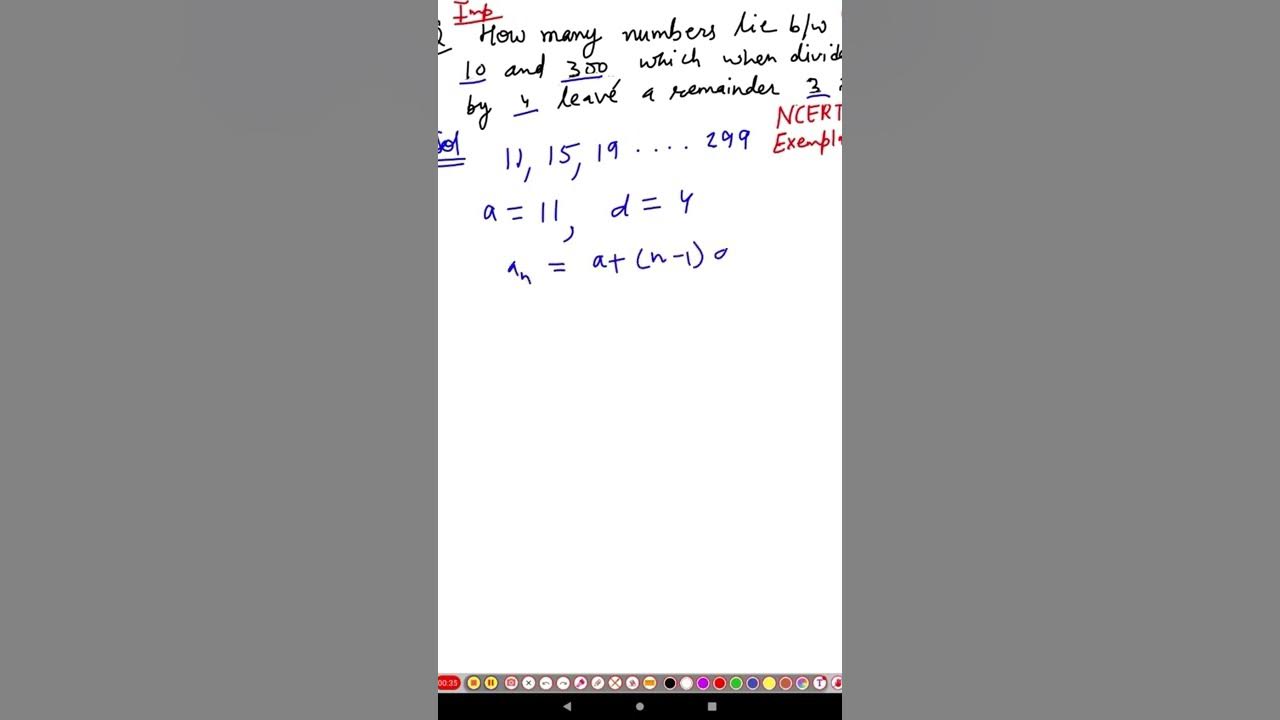 Imp
Q How many numbers lie b/w
10 and 300 which when divide
by 4 leave a remainder 3
NCERT
Sol 11, 15, 19 .... 299 Exempla
a = 11, d = 4
aₙ = a+ (n-1)
00:35